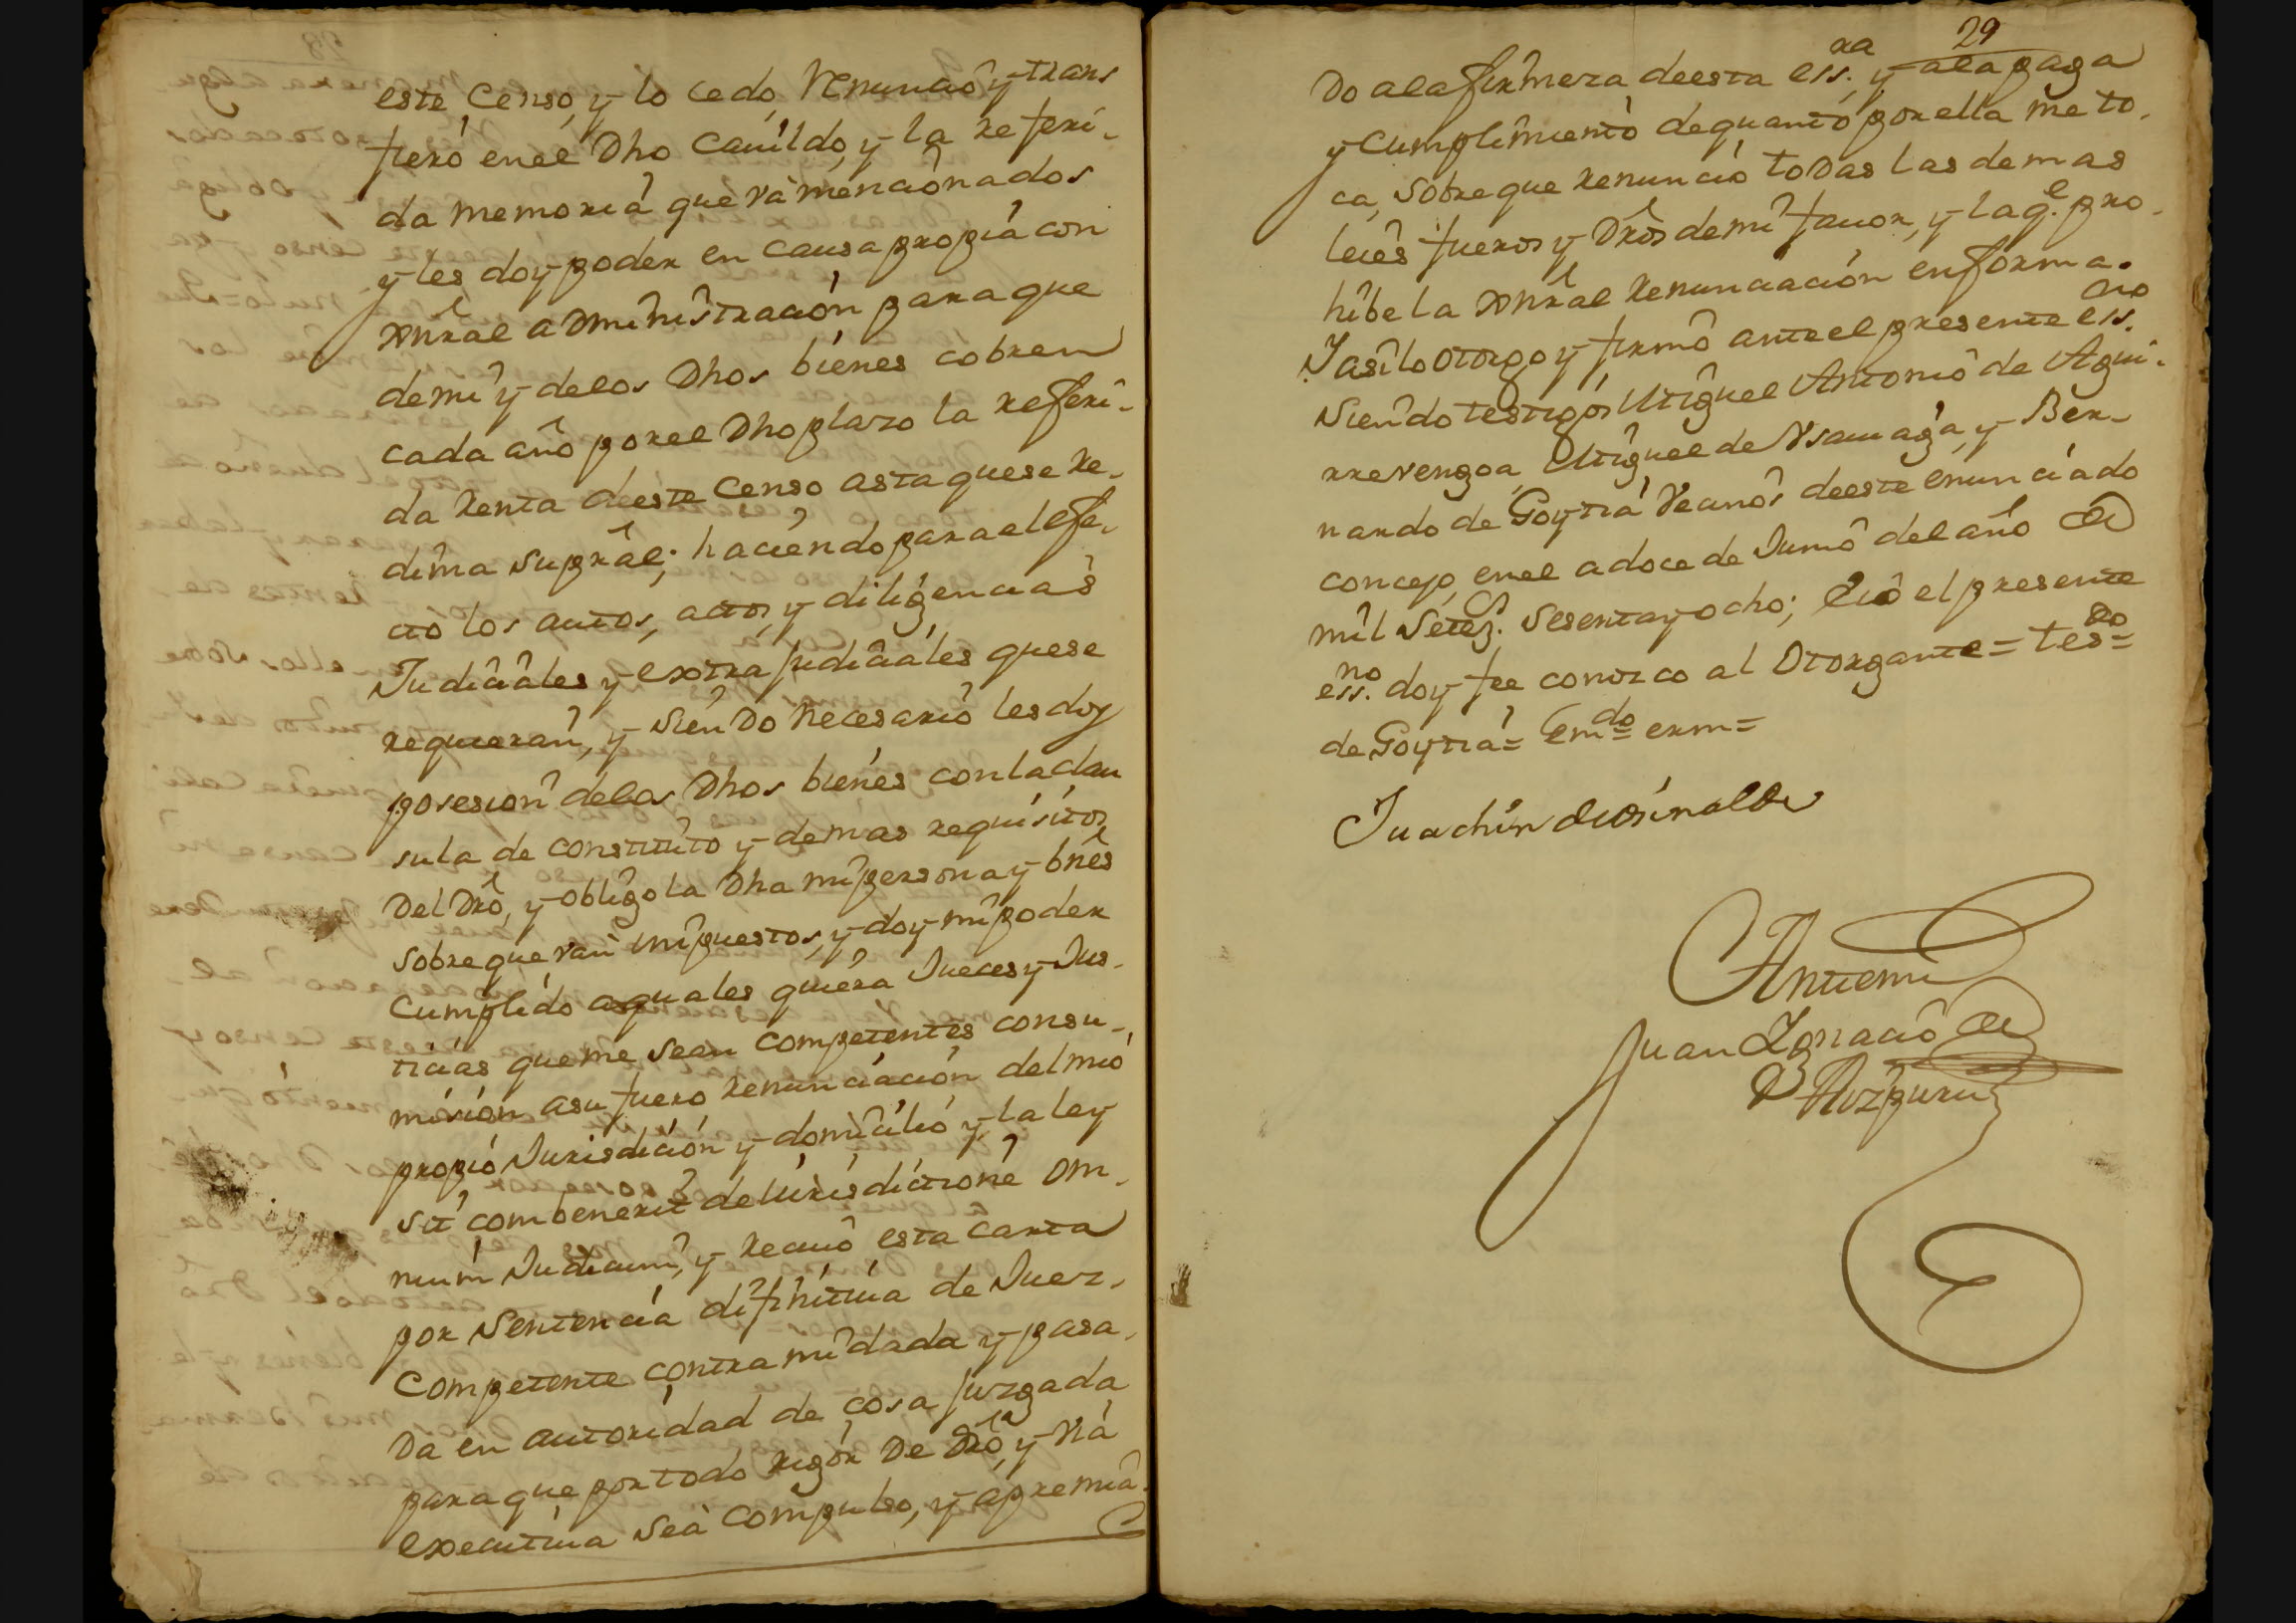 este, Censo, y lo cedo, Renunciò y trans
fierò en el Dho Cauildo, y la referi-
da memoria que và mencionados
y les doy poder en Causa propia con
xnral administracion para que
de mi y de los Dhos bienes cobren
cada año por el Dho plazo la referi-
da Renta deeste Censo asta que se re-
dima suprãl; haciendo para el efe-
cto los autos, actos, y diligencias
Judiciales y extrajudiciales que se
requieran, y siendo necesario les doy
posesion de los Dhos bienes con la clau
sula de constituto y demas requisitos
Del Dró, y obligo la Dha mi persona y bnes
sobre que van impuestos, y doy mi poder
Cumplido aquales quiera Jueces y Jus-
ticias que me sean Competentes con su-
mision a su fuero Renunciacion del mio
propio Jurisdicion y domicilio y la ley
sit combenerit de Iurisdictione om-
nium Judicum, y reciuo esta Carta
por Sentencia difinitiua de Juez.
Competente contra mi dada y pasa-
Da en autoridad de cosa Juzgada
para que por todo rigor De Dró, y via
executiua sea Compulso, y apremia-
29
Do a la firmeza deesta ess.ra y a la paga
y Cumplimiento de quanto por ella me to-
ca, sobre que renuncio todas las demas
leies fueros y Dros de mi fauor, y la q.e pro-
hibe la xnral Renunciacion en forma.
I asi lo otorgo y firmo ante el presente ess.no
siendo testigos Miguel Antonio de Agui-
rrevengoa, Miguel de Vsauiaga, y Ber-
nardo de Goytia Vecinos deeste enunciado
concejo, en el a doce de Junio del año de
mil Setez.s Sesenta y ocho; Eio el presente
ess.no doy fee conozco al Otorgante = tes.do =
de Goytia = Em.do = erm =
Juachin de Osinalde
Antemi
Juan Ignacio de
Aizpuru